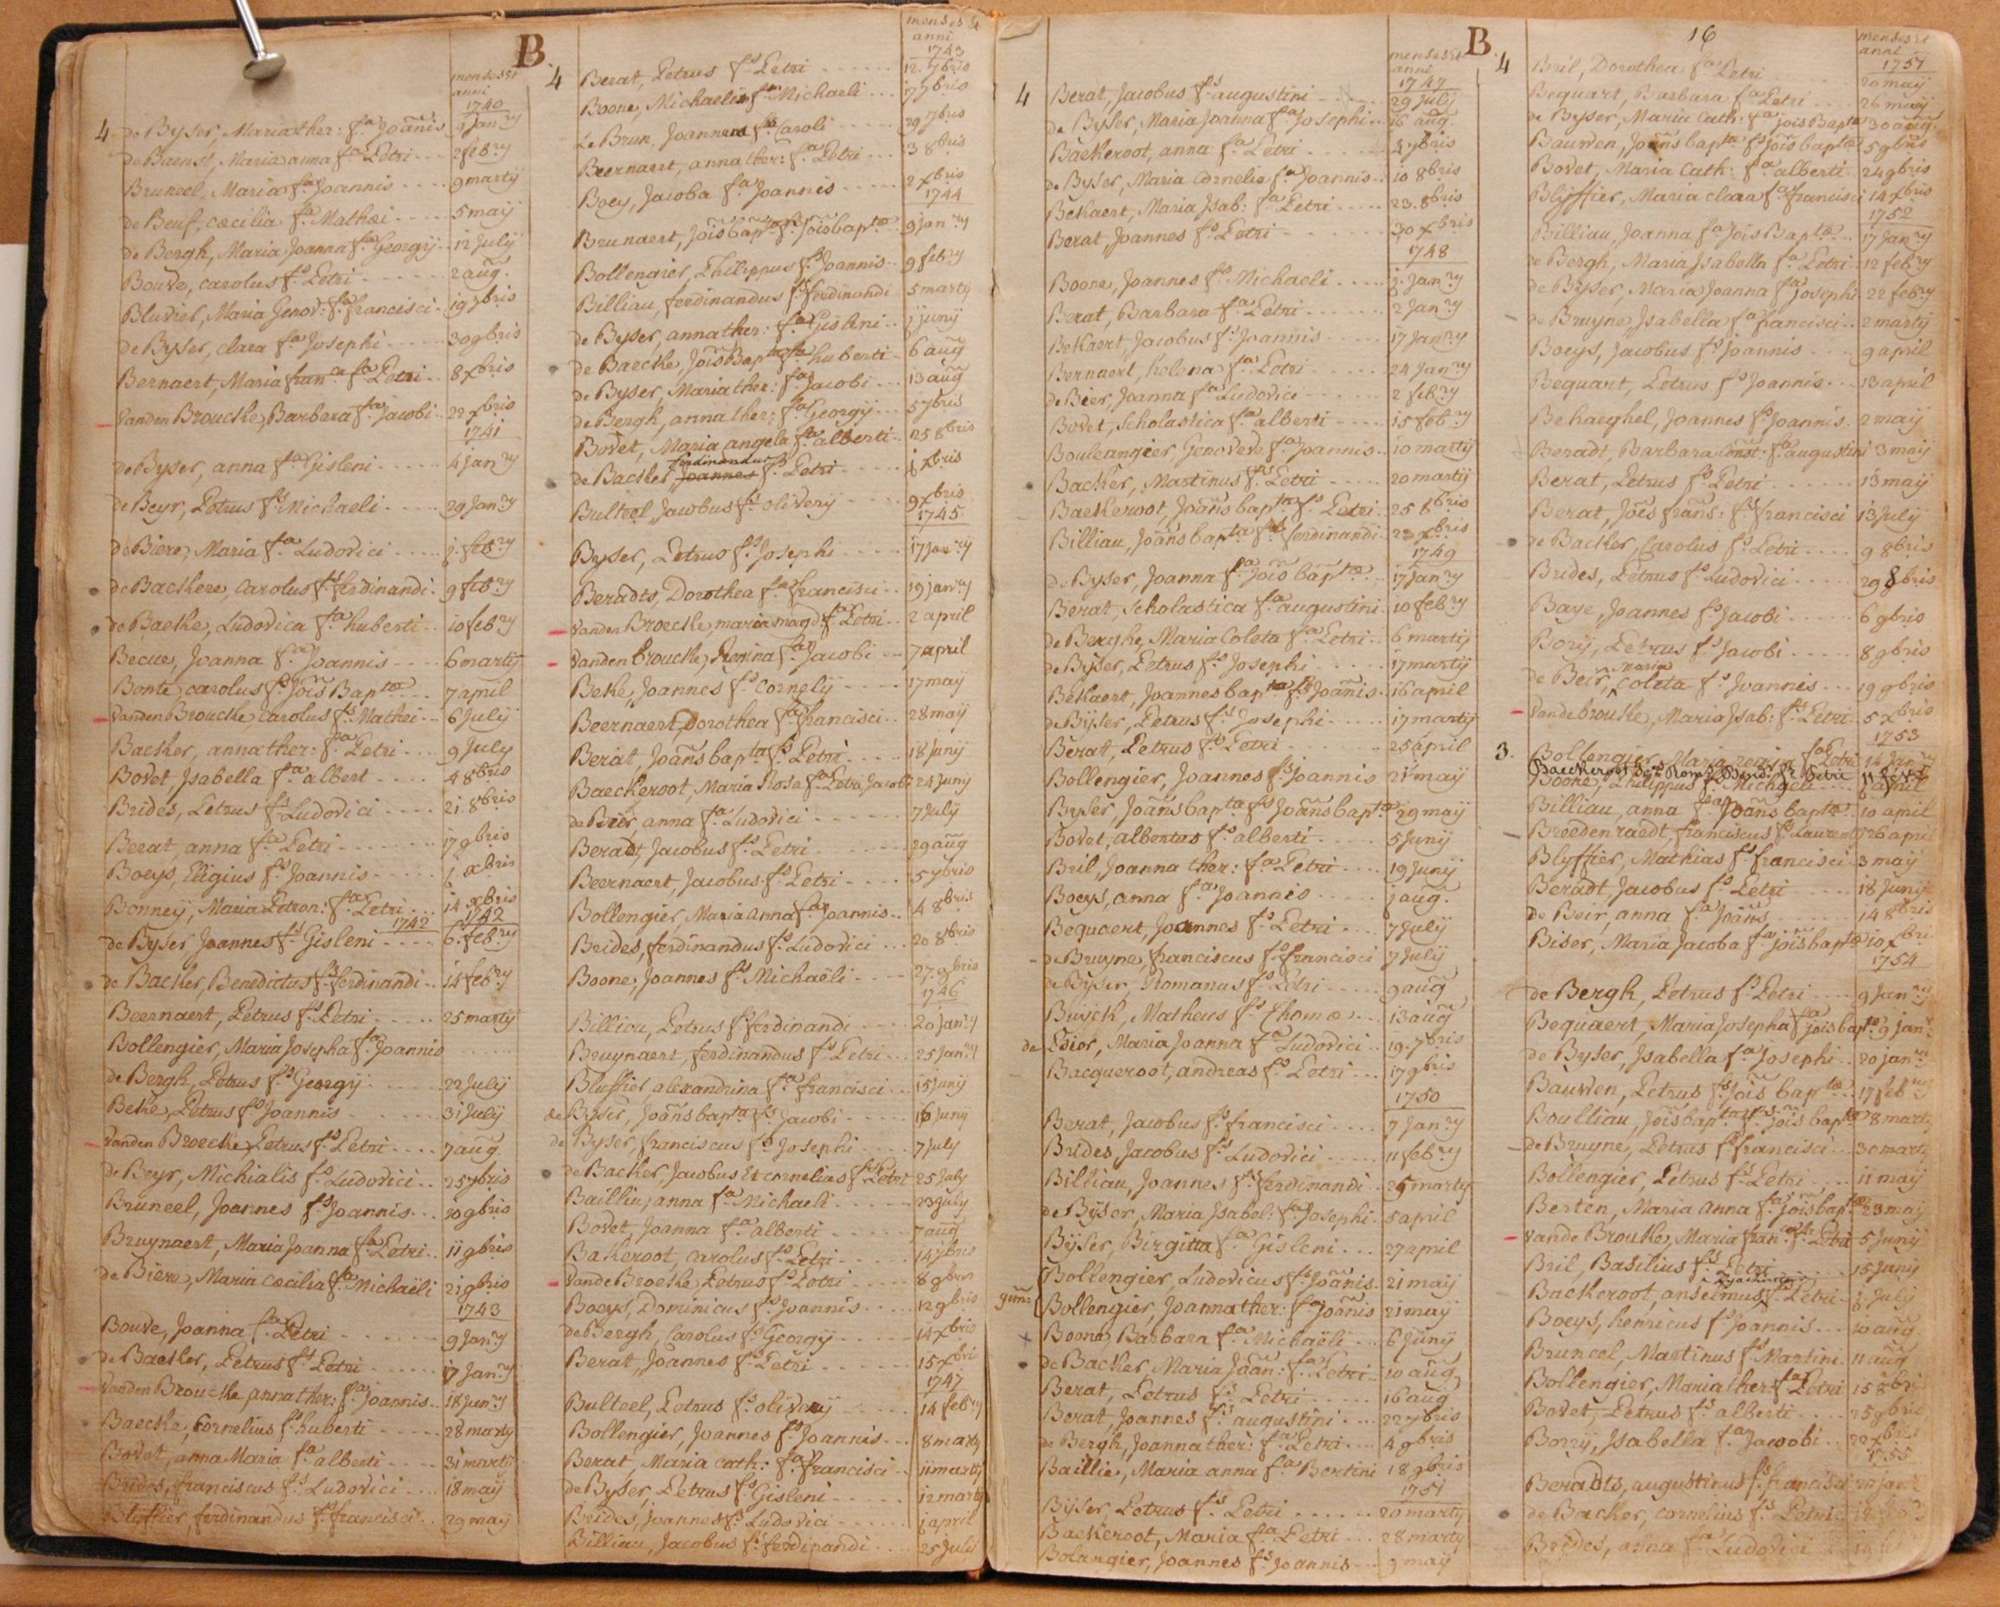 B
menses et
anni
1740
4 de Byser, Maria ther: fa Joannis 9 Janry
de Baenst, Maria anna fa Petri 2 febry
Bruneel, Maria fa Joannis 9 martij
de Beuf, cæcilia fa Mathæi 5 maij
de Bergh, Maria Joanna fa Georgij 12 July
Bouve, carolus fs Petri 2 aug.
Bluvier, Maria Genov: fa francisci 19 7bris
de Byser, clara fa Josephi 30 9bris
Bernaert, Maria fran ca fa Petri 8 xbris
vanden Broucke, Barbara fa Jacobi 22 xbris
1741
de Byser, anna fa Gisleni 4 Janry
de Beyr, Petrus fs Michaeli 29 Janry
de Biere, Maria fa Ludovici j. febry
de Backere, carolus fs ferdinandi 9 febry
de Baeke, Ludovica fa huberti 10 febry
Becue, Joanna fa Joannis 6 martij
Bonte, carolus fs Jois Bap tæ 7 april
vanden Broucke, carolus fs Mathei 6 July
Backer, anna ther: fa Petri 9 July
Bovet Isabella fa albert 4 8bris
Brides, Petrus fs Ludovici 21 8bris
Berat, anna fa Petri 17 9bris
Boeys, Eligius fs Joannis j xbris
Bonney, Maria Petron: fa Petri 14 xbris
1742 1742
de Byser Joannes fs Gisleni 6 febry
de Backer, Benedictus fs ferdinandi 14 febry
Beernaert, Petrus fs Petri 25 martij
Bollengier, Maria Josepha fa Joannis
de Bergh, Petrus fs Georgy 22 Julij
Beke, Petrus fs Joannis 31 Julij
vanden Broecke, Petrus fs Petri 7 aug
de Beyr, Michialis fs Ludovici 25 7bris
Bruneel, Joannes fs Joannis 20 9bris
Bruynaert, Maria Joanna fa Petri 11 9bris
de Biere, Maria cæcilia fa Michaëli 21 9bris
1743
Bouve, Joanna fa Petri 9 Janry
de Backer, Petrus fs Petri 17 Janry
vanden Broucke anna ther: fa Joannis 18 Janry
Baecke, Cornelius fs huberti 28 marty
Bovet, anna Maria fa alberti 31 marty
Brides, franciscus fs Ludovici 18 maij
Bluffier, ferdinandus fs francisci 29 maij
menses et
anni
1743
4 Berat, Petrus fs Petri 12 7bris
Boone, Michaelis fs Michaeli 17 7bris
Le Brun, Joannes fs Caroli 29 7bris
Beernaert, anna ther: fa Petri 3 8bris
Boey, Jacoba fa Joannis 2 xbris
1744
Brunaert, Jois bap ta fs Jois bap ta 9 Janry
Bollengier, Philippus fs Joannis 9 febry
Billiau, ferdinandus fs ferdinandi 5 martij
de Byser, anna ther: fa Gisleni j junij
de Baecke, Jois Bap ta fs huberti 6 aug
de Byser Maria ther: fa Jacobi 13 aug
de Bergh, anna ther: fa Georgy 5 7bris
Bovet, Maria angela fa alberti 25 8bris
ferdinandus
de Backer, Joannes fs Petri j xbris
Bulteel, Jacobus fs olivery 9 xbris
1745
Byser, Petrus fs Josephi 17 Janry
Beradts, Dorothea fa francisci 19 janry
vanden Broecke, maria magd fa Petri 2 april
vanden Broucke, Regina fa Jacobi 7 april
Beke, Joannes fs Cornelij 17 maij
Beernaert Dorothea fa francisci 28 maij
Berat, Joans bap ta fs Petri 18 Junij
Baeckeroot, Maria Rosa fa Petri Jacobi 24 Junij
de Beir, anna fa Ludovici 7 July
Beradt, Jacobus fs Petri 29 aug
Beernaert, Jacobus fs Petri 5 7bris
Bollengier, Maria Anna fa Joannis 4 8bris
Brides, ferdinandus fs Ludovici 20 8bris
Boone, Joannes fs Michaëli 27 9bris
1746
Billiau, Petrus fs ferdinandi 20 janry
Bruynaert, ferdinandus fs Petri 25 Janry
Bluffier alexandrina fa francisci 15 junij
de Byser, Joans bap ta fs Jacobi 16 Junij
de Byser, franciscus fs Josephi 7 july
de Backer, Jacobus et cornelius fs Petri 25 July
Bailliu, anna fa Michaeli 23 July
Bovet, Joanna fa alberti 7 aug
Bakeroot, Carolus fs Petri 14 7bris
vande Broeke, Petrus fs Petri 8 9bris
Boeys, Dominicus fs Joannis 12 9bris
de Bergh, Carolus fs Georgy 14 xbris
Berat, Joannes fs Petri 15 xbri
1747
Bulteel, Petrus fs olivery 14 febry
Bollengier, Joannes fs Joannis 8 marty
Berat, Maria cath: fa francisci 11 martij
de Byser, Petrus fs Gisleni 12 marty
Brides, Joannes fs Ludovici j april
Billiau, Jacobus fs ferdinandi 25 July
B
menses et
anni
1747
4 Berat, Jacobus fs augustini 29 July
de Byser, Maria Joanna fa Josephi 16 aug.
Backeroot, anna fa Petri 4 7bris
de Byser, Maria Cornelia fa Joannis 10 8bris
Bekaert, Maria Isab: fa Petri 23 8bris
Berat, Joannes fs Petri 30 xbris
1748
Boone, Joannes fs Michaeli j. Janry
Berat, Barbara fa Petri 2 Janry
Bekaert, Jacobus fs Joannis 17 Janry
Bernaert, helena fa Petri 24 Janry
de Bier, Joanna fa Ludovici 2 febry
Bovet, Scholastica fa alberti 15 febry
Boulangier, Genoveve fa Joannis 10 martij
Backer, Martinus fs Petri 20 martij
Backeroot, Joans bap ta fs Petri 25 8bris
Billiau, Joans bap ta fs ferdinandi 23 xbris
1749
de Byser, Joanna fa Jois bap tæ 17 Janry
Berat, Scholastica fa augustini 10 febry
de Berghe, Maria Coleta fa Petri 6 martij
de Byser, Petrus fs Josephi 17 martij
Bekaert, Joannes bap ta fs Joanis 16 april
de Byser, Petrus fs Josephi 17 marty
Berat, Petrus fs Petri 25 april
Bollengier, Joannes fs Joannis 21 maij
Byser, Joans bap ta fs Joans bap tæ 29 maij
Bovet, albertus fs alberti 5 Junij
Bril, Joanna ther: fa Petri 19 Junij
Boeys, anna fa Joannis j aug.
Bequaert, Joannes fs Petri 7 July
de Bruyne, franciscus fs francisci 7 July
de Byser, Romanus fs Petri 9 aug
Buyck, Matheus fs Thomæ 13 aug
de Beier, Maria Joanna fa Ludovici 19 7bris
Bacqueroot, andreas fs Petri 17 9bris
1750
Berat, Jacobus fs francisci 7 Janry
Brides, Jacobus fs Ludovici 11 febry
Billiau, Joannes fs ferdinandi 25 marty
de Byser, Maria Isabel: fa Josephi 5 april
Byser, Birgitta fa Gisleni 27 april
Bollengier, Ludovicus fs Joanis 21 maij
gem: Bollengier, Joanna ther: fa Joanis 21 maij
Boone, Barbara fa Michaëli 6 Junij
de Backer, Maria Joan: fa Petri 10 aug
Berat, Petrus fs Petri 16 aug
Berat, Joannes fs augustini 22 7bris
de Bergh, Joanna ther: fa Petri 4 9bris
Baillie, Maria anna fa Bertini 18 9bris
1751
Byser, Petrus fs Petri 20 marty
Backeroot, Maria fa Petri 28 marty
Bolangier, Joannes fs Joannis 9 maij
16
menses et
anni
1751
4 Bril, Dorothea fa Petri 20 maij
Bequart, Barbara fa Petri 26 maij
de Byser, Maria Cath: fa Jois Bap tæ 30 aug
Bauwen, Joans bap ta fs Jois bap tæ 5 9bris
Bovet, Maria Cath: fa alberti 24 9bris
Blyffier, Maria clara fa francisci 14 xbris
1752
Billiau, Joanna fa Jois Bap tæ 17 Janry
de Bergh, Maria Isabella fa Petri 12 febry
de Byser, Maria Joanna fa Josephi 22 febry
de Bruyne Isabella fa francisci 2 martij
Boeys, Jacobus fs Joannis 9 april
Bequart, Petrus fs Joannis 13 april
Behaeghel, Joannes fs Joannis 2 maij
Beradt, Barbara Const: fa augustini 3 maij
Berat, Petrus fs Petri 13 maij
Berat, Jois frans: fs francisci 13 July
de Backer, Carolus fs Petri 9 8bris
Brides, Petrus fs Ludovici 29 8bris
Baye, Joannes fs Jacobi 6 9bris
Borij, Petrus fs Jacobi 8 9bris
maria
de Beir, Coleta fs Joannis 19 9bris
vande brouke, Maria Isab: fa Petri 5 xbris
1753
3. Bollengier, Maria fa Petri 14 Janry
Boone, Philippus fs Michaeli april
Billiau, anna fa Joans bap tæ 10 april
Breedenraedt, franciscus fs Laurentij 26 april
Blyffier, Mathias fs francisci 3 maij
Beradt, Jacobus fs Petri 18 Junij
de Beir, anna fa Joans 14 8bris
Biser, Maria Jacoba fa jois bap tæ 10 xbri
1754
de Bergh, Petrus fs Petri 9 Janry
Bequaert, Maria Josepha fa jois bap tæ 9 jan
de Byser, Isabella fa Josephi 20 jan
Bauwen, Petrus fs Jois bap tæ 17 feb
Boulliau, Jois bap ta fs Jois bap tæ 8 marti
de Bruyne, Petrus fs francisci 30 marti
Bollengier, Petrus fs Petri 11 maij
Berten, Maria Anna fa jois bap tæ 23 maij
vande Brouke, Maria fran ca fa Petri 5 Junij
Bril, Basilius fs Petri 15 Junij
Backeroot, anselmus fs Petri j July
Boeys, henricus fs Joannis 10 aug
Bruneel, Martinus fs Martini 11 aug
Bollengier, Maria ther: fa Petri 15 8bri
Bovet, Petrus fs alberti 25 9bris
Borrij, Isabella fa Jacobi 22 xbris
1755
Beradts, augustinus fs francisci
de Backer, cornelius fs Petri
Brides, anna fa Ludovici